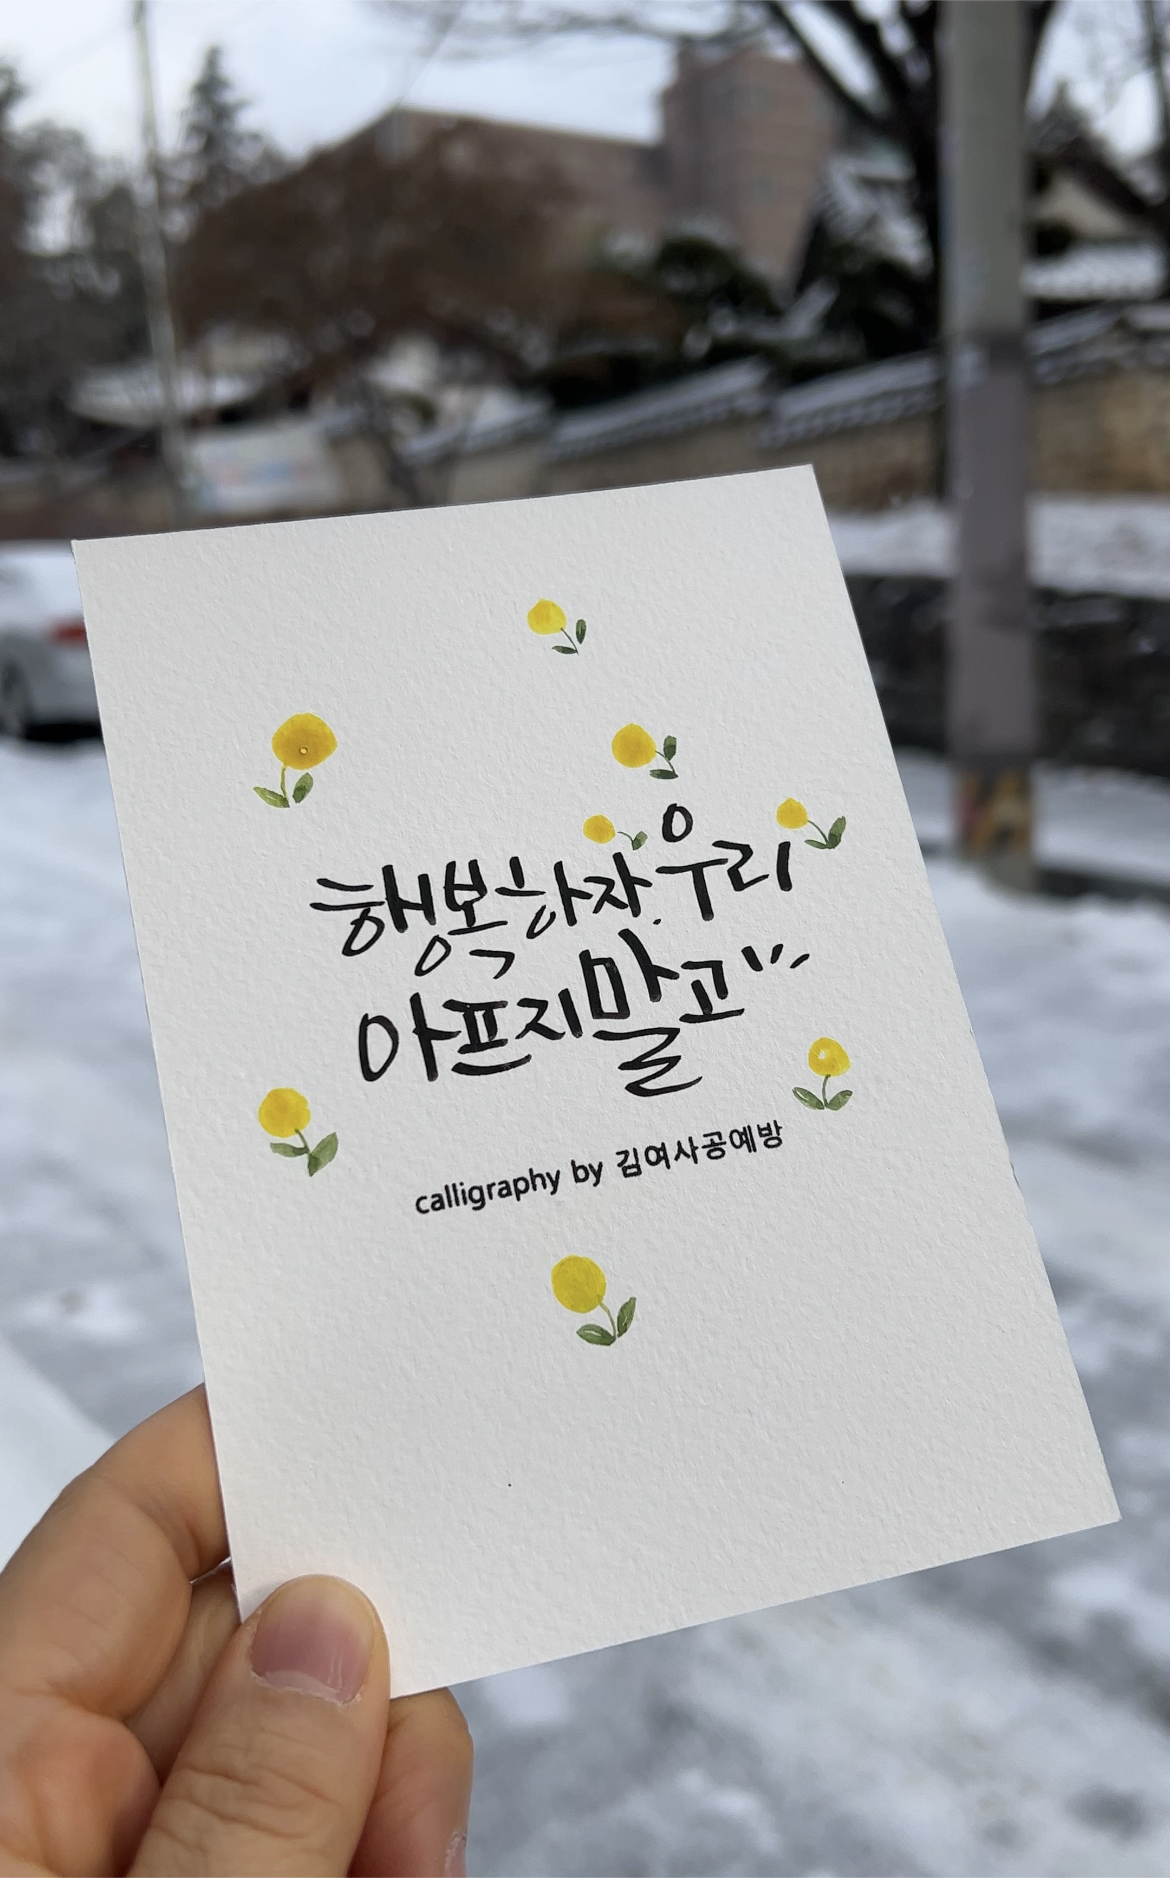 행복하자 우리
아프지 말고"
calligraphy by 김여사공예방